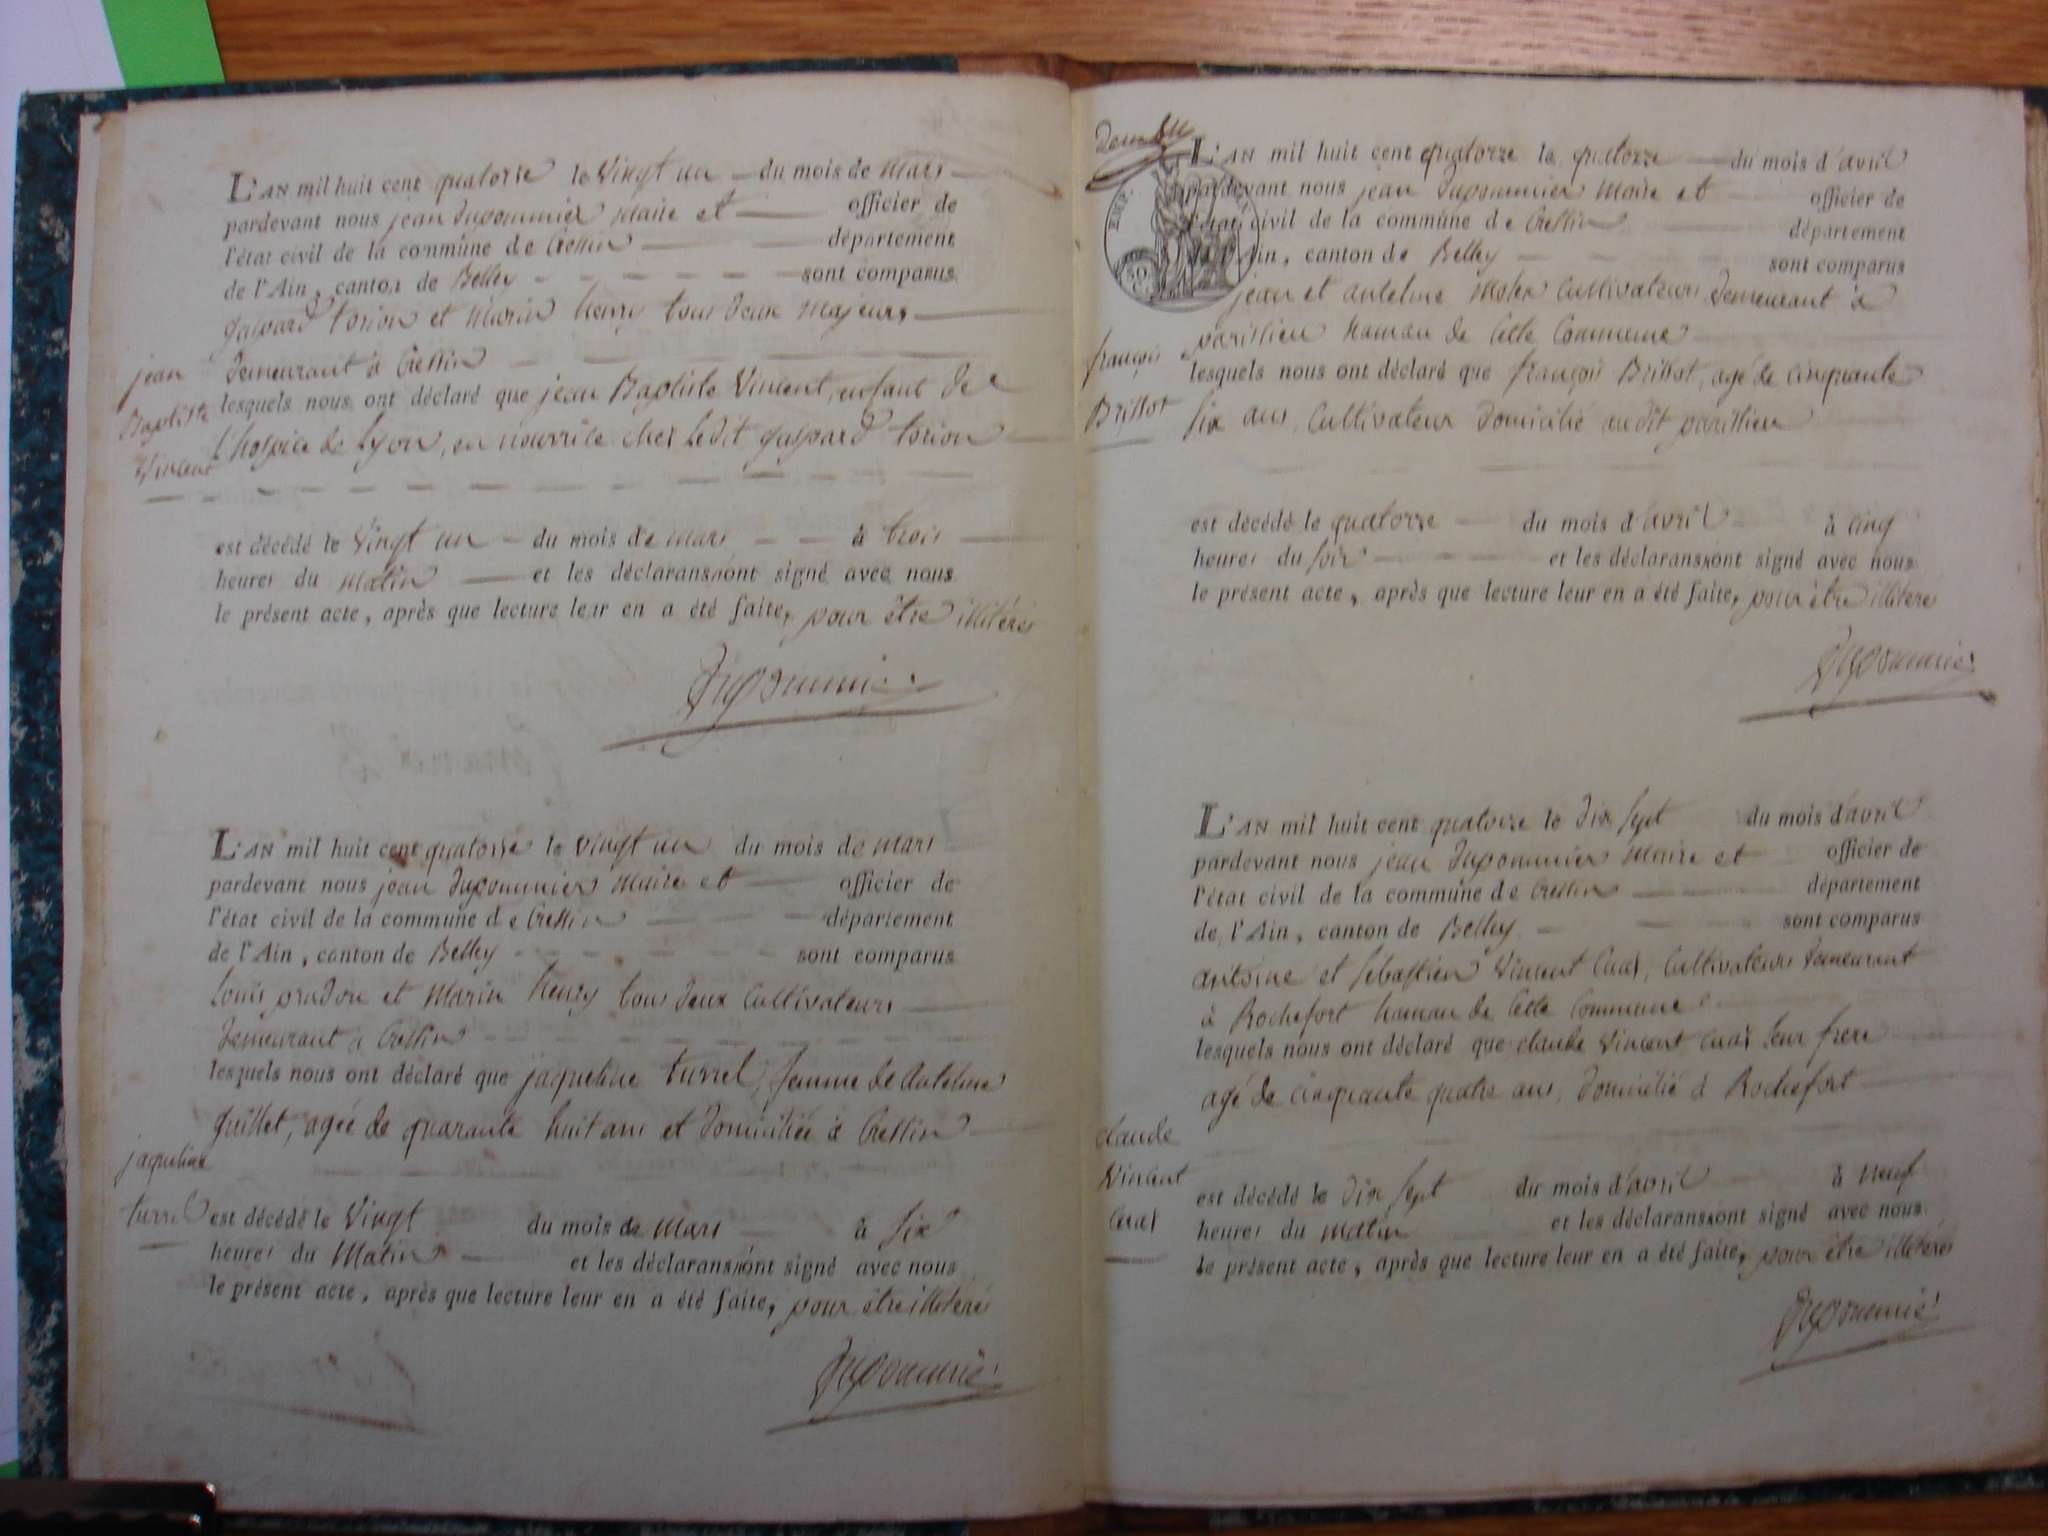 L'AN mil huit cent quatorse le vingt un du mois de mars
pardevant nous jean duponmier maire et officier de
l'état civil de la commune de Cressin département
de l'Ain, canton de Belley sont comparus
gaspard torion et Marin henry tous deux majeurs
demeurant à Cressin
jean
Baptiste
Vincent
lesquels nous ont déclaré que jean Baptiste Vincent, enfant de
l'hospice de Lyon, en nourrice chez ledit gaspard torion
est décédé le vingt un du mois de mars à trois
heures du matin et les déclarans n'ont signé avec nous
le présent acte, après que lecture leur en a été faite, pour être illitérés
duponmier
L'AN mil huit cent quatorse le vingt un du mois de mars
pardevant nous jean duponmier maire et officier de
l'état civil de la commune de Cressin département
de l'Ain, canton de Belley sont comparus
Louis pradon et Marin henry tous deux cultivateurs
demeurant à Cressin
lesquels nous ont déclaré que jaqueline turrel, femme de Antelme
guillet, agée de quarante huit ans et domiciliée à Cressin
jaqueline
turrel
est décédé le vingt du mois de mars à six
heures du matin et les déclarans n'ont signé avec nous
le présent acte, après que lecture leur en a été faite, pour être illitérés
duponmier
EMP.
50
C.
L'AN mil huit cent quatorze le quatorze du mois d'avril
pardevant nous jean duponmier maire et officier de
l'état civil de la commune de Cressin département
de l'Ain, canton de Belley sont comparus
jean et antelme cultivateurs demeurant à
parissieu hamau de cette commune
françois
Brissot
lesquels nous ont déclaré que françois Brissot, agé de cinquante
six ans, cultivateur domicilié audit parissieu
est décédé le quatorze du mois d'avril à cinq
heures du soir et les déclarans n'ont signé avec nous
le présent acte, après que lecture leur en a été faite, pour être illitérés
duponmier
L'AN mil huit cent quatorze le dix sept du mois d'avril
pardevant nous jean duponmier maire et officier de
l'état civil de la commune de Cressin département
de l'Ain, canton de Belley sont comparus
antoine et sébastien Vincent Cuaz, cultivateurs demeurant
à Rochefort hamau de cette commune
lesquels nous ont déclaré que claude Vincent Cuaz leur frere
agé de cinquante quatre ans, domicilié à Rochefort
claude
Vincent
Cuaz
est décédé le dix sept du mois d'avril à neuf
heures du matin et les déclarans n'ont signé avec nous
le présent acte, après que lecture leur en a été faite, pour être illitérés
duponmier